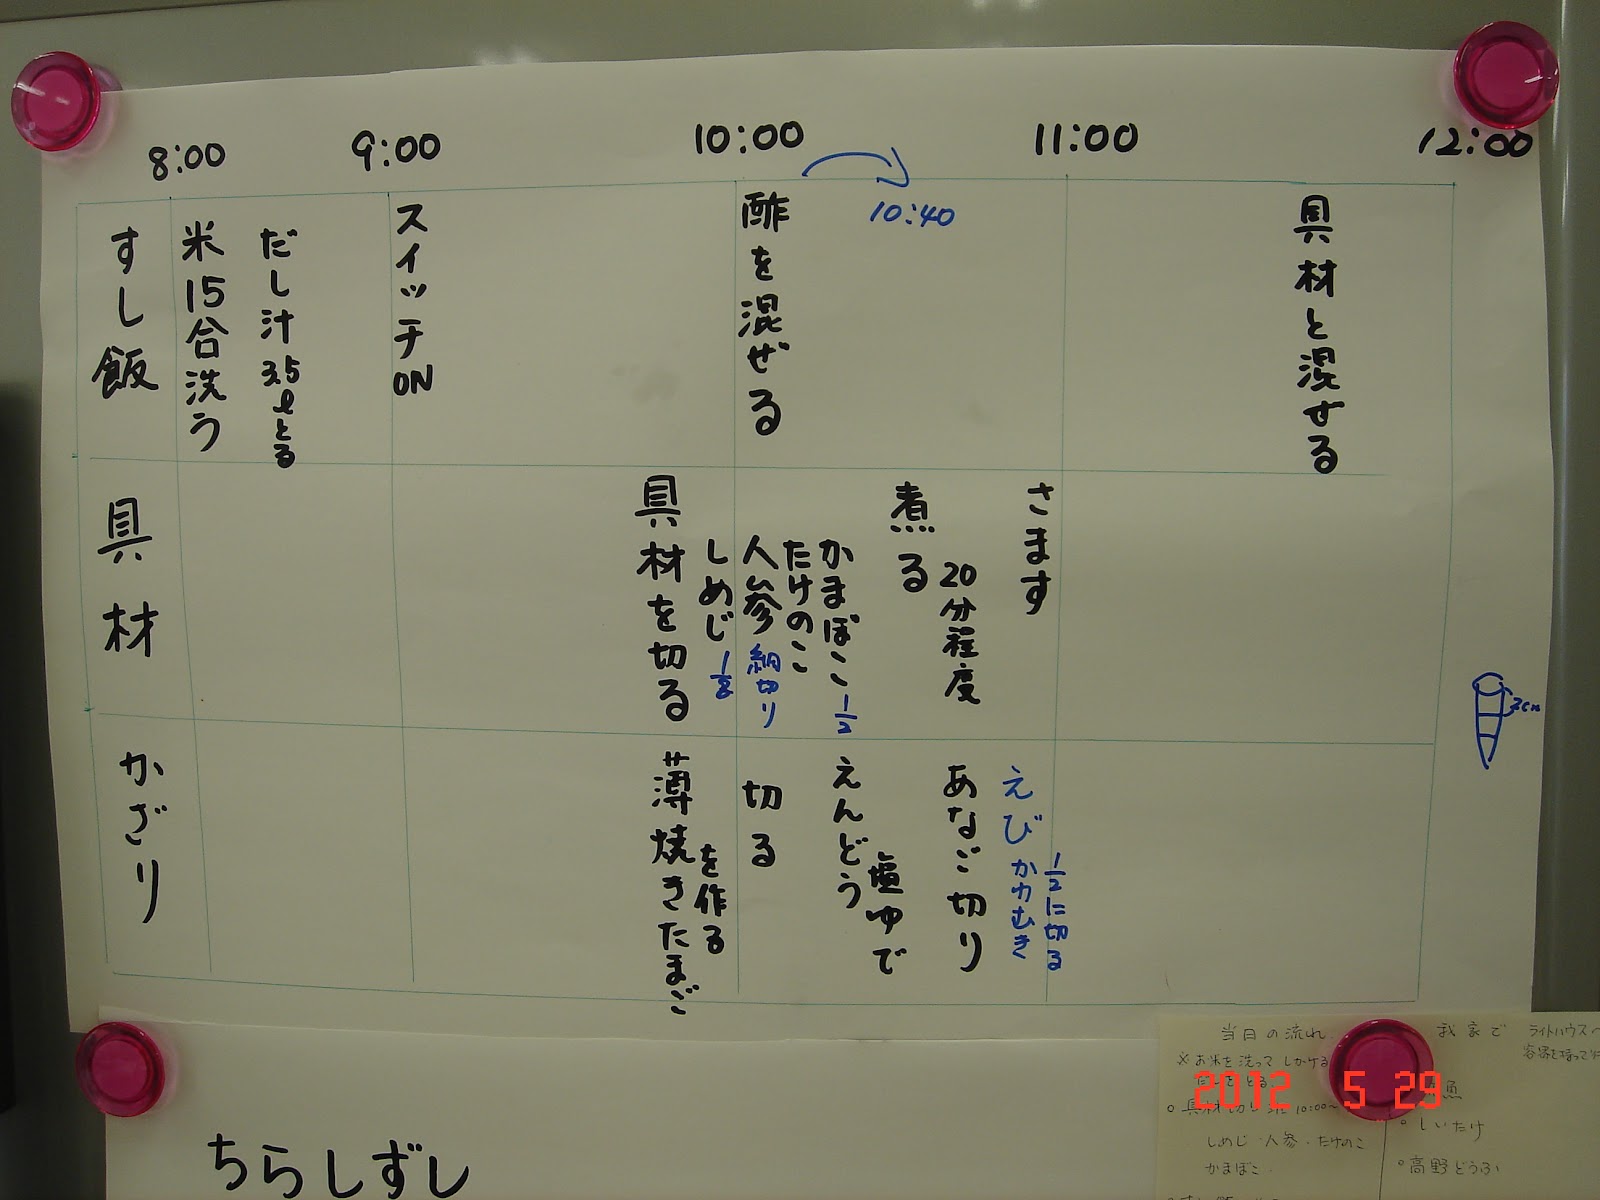 8:00
9:00
10:00
11:00
12:00
10:40
すし飯
米15合洗う
だし汁3.5ℓとる
スイッチON
酢を混ぜる
具材と混ぜる
具材
具材を切る
しめじ 1/8
人参 細切り
たけのこ
かまぼこ 1/2
煮る
20分程度
さます
2cm
かざり
薄焼きたまご
を作る
切る
えんどう
塩ゆで
あなご切り
えび かわむき
1/2に切る
ちらしずし
当日の流れ
※お米を洗ってしかける
とる
10:00~
しめじ・人参・たけのこ
かまぼこ
我家で
ライトハウスへ
魚
○しいたけ
○高野どうふ
2012 5 29